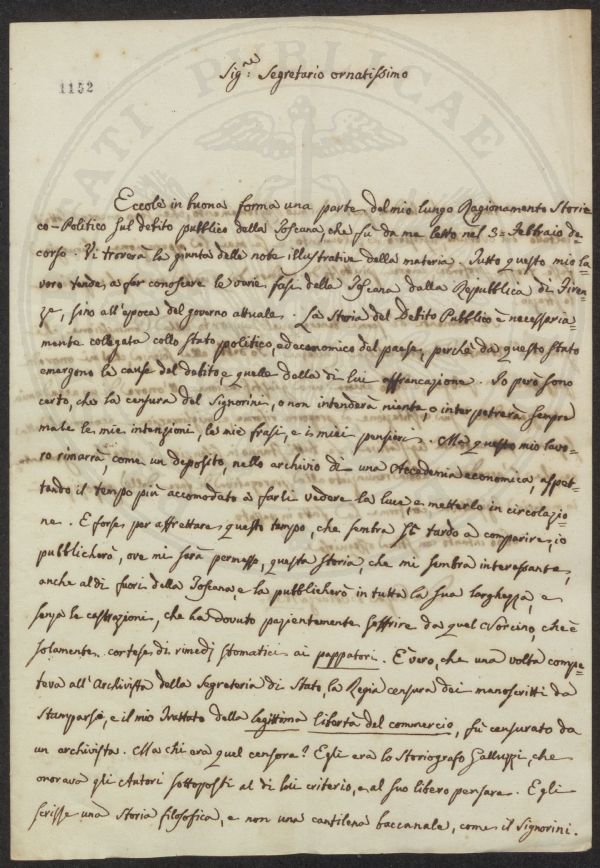 1152
Sig.re Segretario ornatissimo
Eccole in buona forma una parte del mio lungo Ragionamento Stori=
co-Politico sul debito pubblico della Toscana, che fù da me letto nel 3. Febbraio de=
corso. Vi troverà la giunta delle note illustrative della materia. Tutto questo mio la=
voro tende a far conoscere le varie fasi della Toscana dalla Repubblica di Firen=
ze, sino all'epoca del governo attuale. La Storia del Debito Pubblico è necessaria=
mente collegata collo stato politico, ed economico del paese, perchè da questo stato
emergono le cause del debito, e quelle della di lui affrancazione. Io però sono
certo, che la censura del Signorini, o non intenderà niente, o interpetrerà sempre
male le mie intenzioni, le mie frasi, e i miei pensieri. Ma questo mio lavo=
ro rimarrà, come un deposito, nello archivio di una Accademia economica, aspet=
tando il tempo più accomodato a farli vedere la luce, e metterlo in circolazio=
ne. E forse per affrettare questo tempo, che sembra tardo a comparire, io
pubblicherò, ove mi sarà permesso, questa Storia, che mi sembra interessante,
anche al di fuori della Toscana, e la pubblicherò in tutta la sua larghezza, e
senza le castrazioni, che ha dovuto pazientemente soffrire da quel Norcino, che è
solamente cortese di rimedj stomatici ai pappatori. È vero, che una volta compe=
teva all'Archivista della Segreteria di Stato, la Regia censura dei manoscritti da
stamparsi, e il mio Trattato della legittima libertà del commercio, fù censurato da
un archivista. Ma chi era quel censore? Egli era lo Storiografo Galluzzi, che
onorava gli Autori sottoposti al di lui criterio, e al suo libero pensare. Egli
scrisse una storia filosofica, e non una cantilena baccanale, come il Signorini.